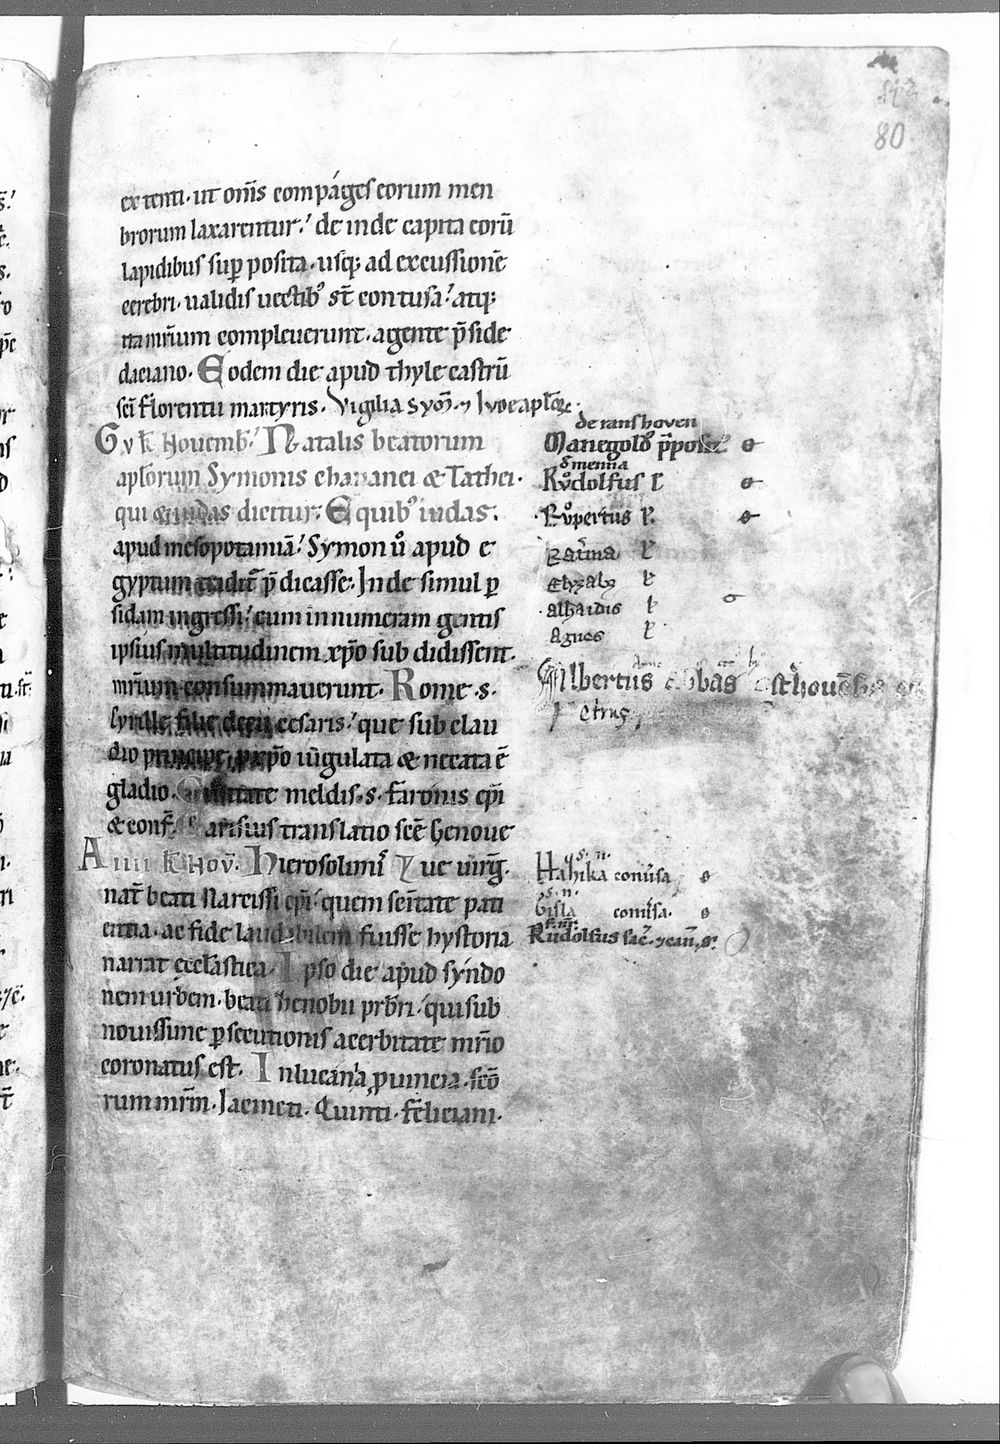 80
extenti· ut om̄s compáges eorum men
brorum laxarentur:́ deinde capita eorū
lapidibus suꝑ posita· usq; ad excussionē
cerebri· ualidis uectibꝰ st̄ contusa:́ atq;
ita mr̄ium compleuerunt· agente p̄side
daciano· Eodem die apud thyle castrū
sc̄i florentii martyris· Vigilia Symō· ⁊ Iude aplōꝝ·
G v kł Nouemb:́ Natalis beatorum
apl̄orum Symonis chananei & Tathei·
qui & iudas dicitur· E quibꝰ iudas·
apud mesopotamiā:́ Symon ů apud e
gyptum tradit̄ p̄dicasse· Inde simul ꝑ
sidam ingressi:́ cum innumeram gentis
ipsius multitudinem xp̄o subdidissent·
mr̄ium consummauerunt· Rome ·s·
Cyrille filie decii cesaris:́ que sub clau
dio principe, p xp̄o iugulata & necata ē
gladio· ciuitate meldis ·s· faronis ep̄i
& conf̄· arisius translatio scē Genoue
A iiii kł Nov̄· Hierosolimis̄ Luc uirḡ·
nat̄ beati Narcissi ep̄i:́ quem sc̄itate pati
entia· ac fide laudabilem fuisse hystoria
narrat ęccl̄astica· Ipso die apud syndo
nem urbem· beati Zenobii prb̄ri·́ qui sub
nouissime ꝑsecutionis acerbitate mr̄io
coronatus est· In lucania ꝓuincia· sc̄o
rum mr̄m· Iacincti· Quinti· feliciani·
de ranshoven
Manegoldꝰ p̄posit̄
Růdolfus ł
Růpertus ł·
ł
Elyzabꝫ ł
alhaidis ł
Agnes ł
Albertus abbas
petrus
s· n·
Hazika conu̓sa
s· n·
Gisla conu̓sa·
Růdolfus sac̄· ⁊ can̄